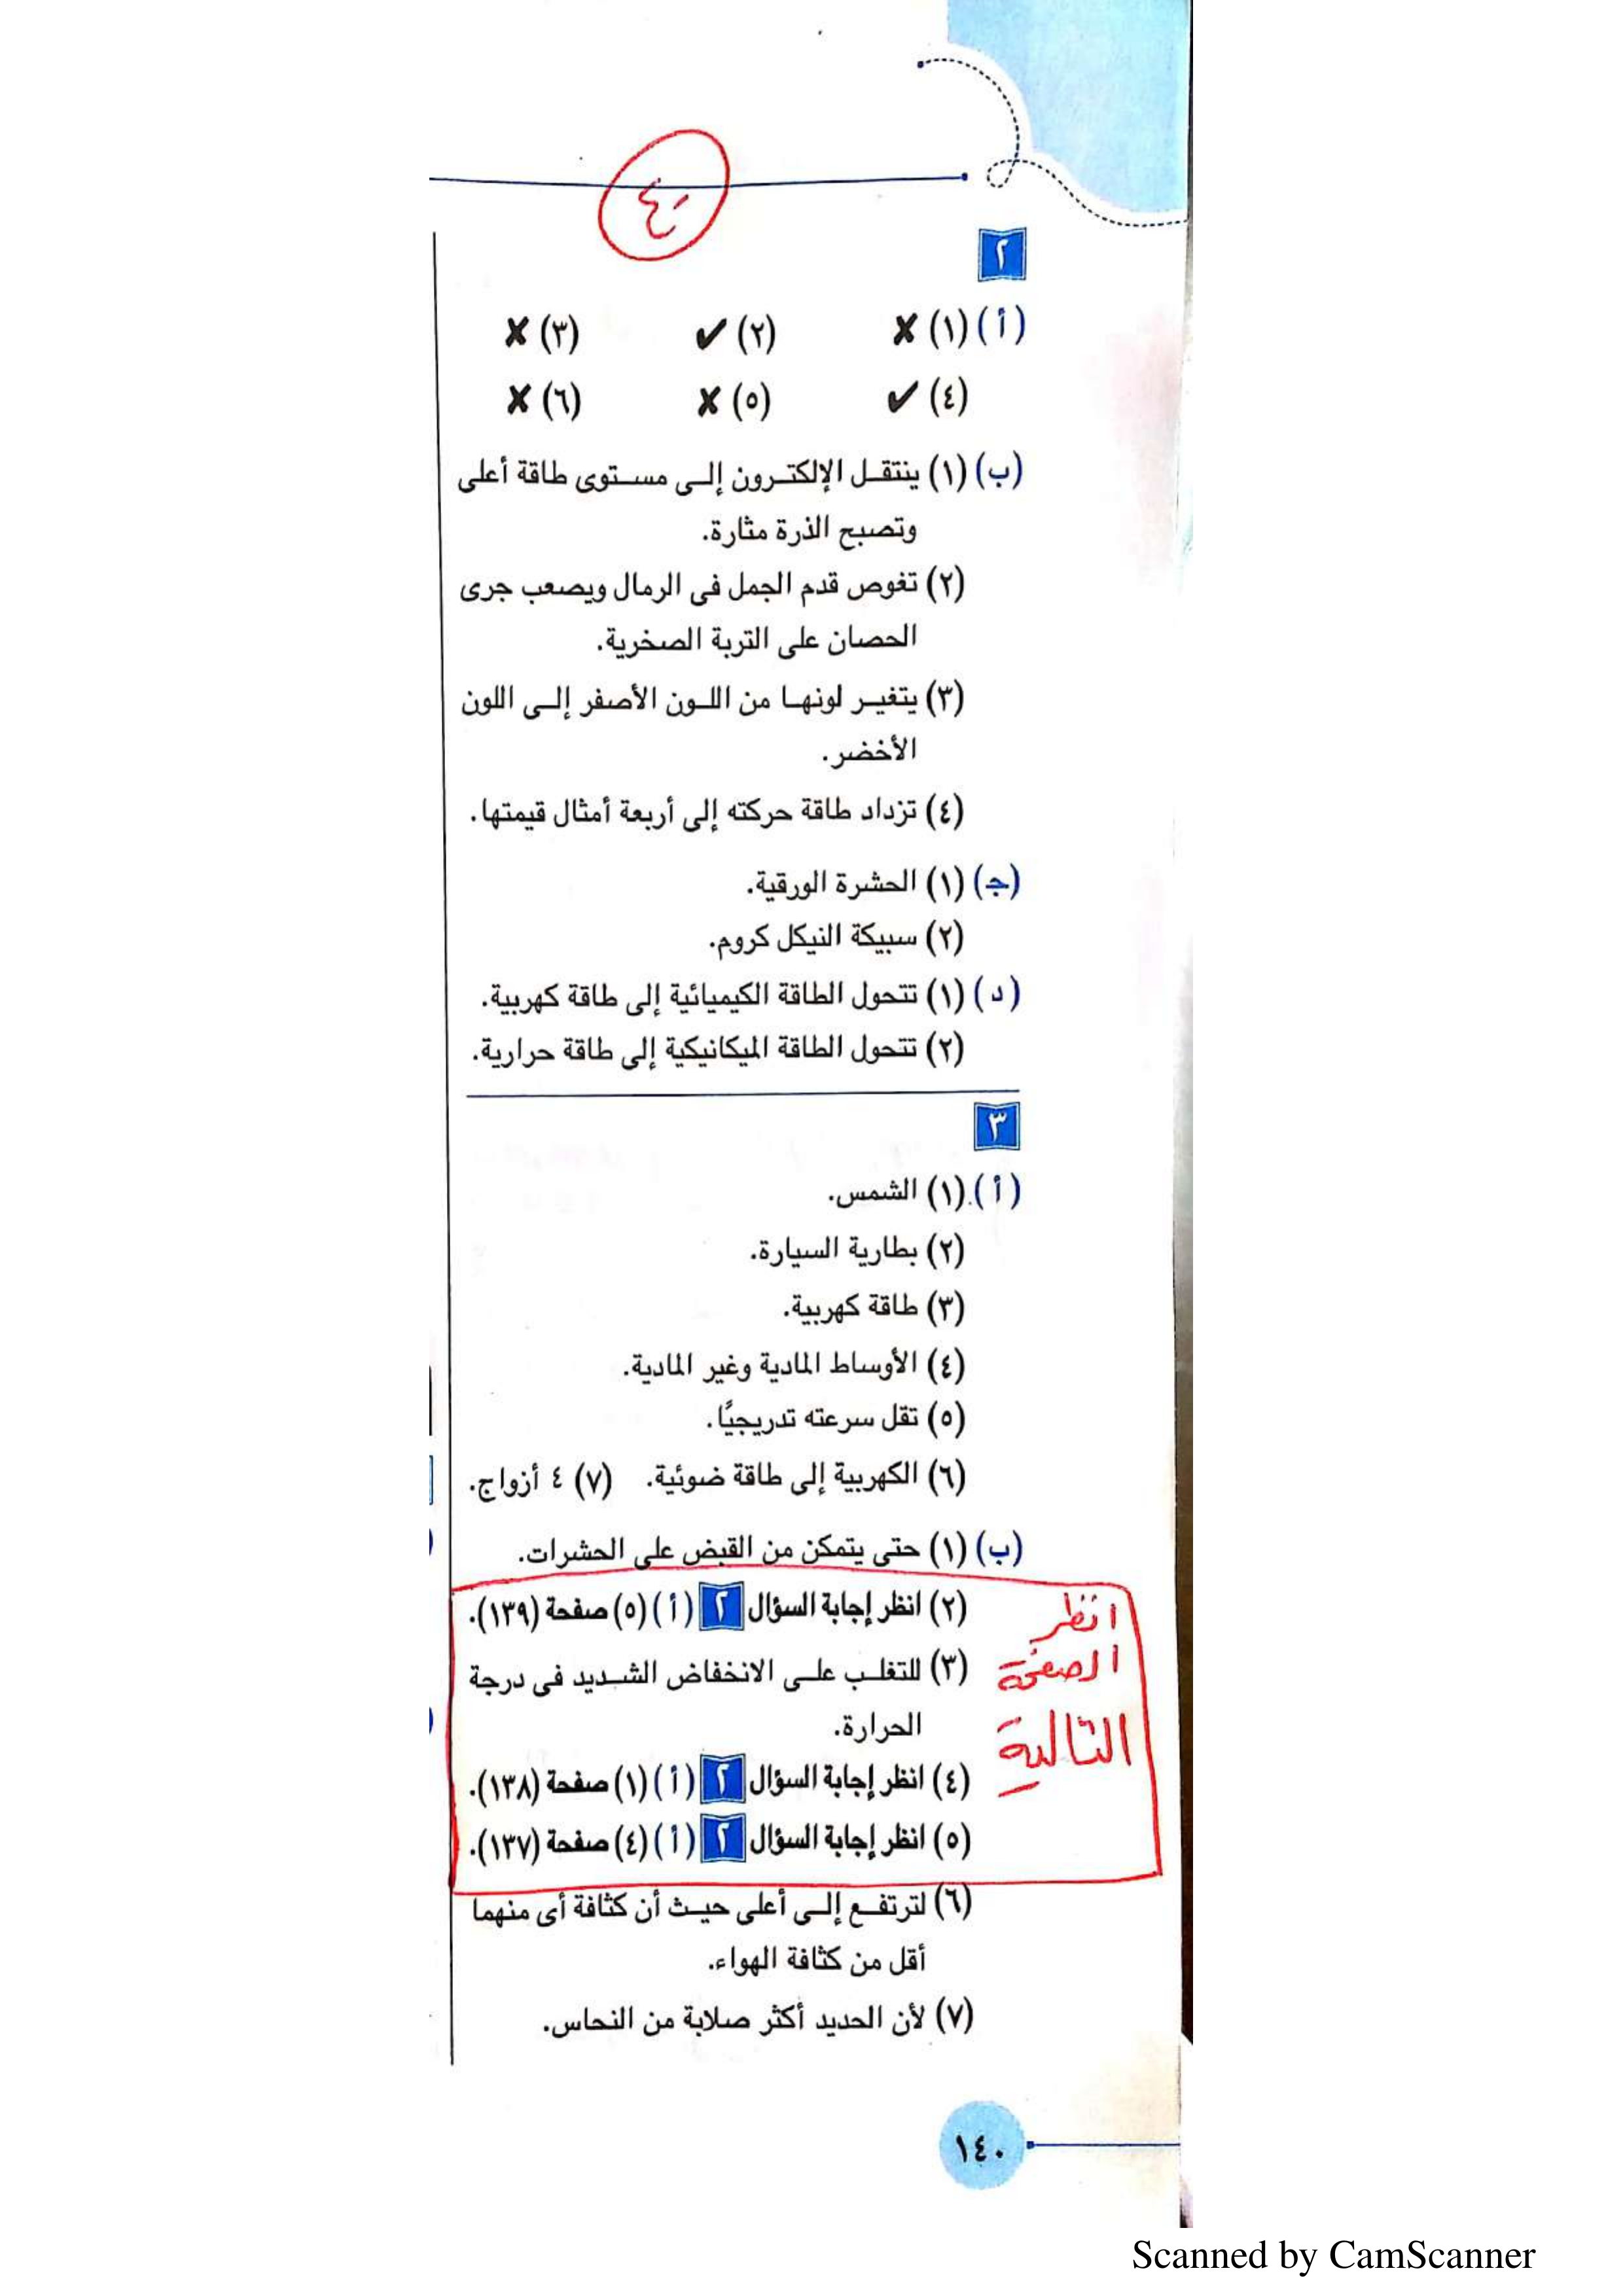 ٤
٢
(أ) (١) ✘ (٢) ✔ (٣) ✘
(٤) ✔ (٥) ✘ (٦) ✘
(ب) (١) ينتقل الإلكترون إلى مستوى طاقة أعلى
وتصبح الذرة مثارة.
(٢) تغوص قدم الجمل فى الرمال ويصعب جرى
الحصان على التربة الصخرية.
(٣) يتغير لونها من اللون الأصفر إلى اللون
الأخضر.
(٤) تزداد طاقة حركته إلى أربعة أمثال قيمتها.
(جـ) (١) الحشرة الورقية.
(٢) سبيكة النيكل كروم.
(د) (١) تتحول الطاقة الكيميائية إلى طاقة كهربية.
(٢) تتحول الطاقة الميكانيكية إلى طاقة حرارية.
٣
(أ) (١) الشمس.
(٢) بطارية السيارة.
(٣) طاقة كهربية.
(٤) الأوساط المادية وغير المادية.
(٥) تقل سرعته تدريجيًا.
(٦) الكهربية إلى طاقة ضوئية. (٧) ٤ أزواج.
(ب) (١) حتى يتمكن من القبض على الحشرات.
(٢) انظر إجابة السؤال ٢ (أ) (٥) صفحة (١٣٩).
(٣) للتغلب على الانخفاض الشديد فى درجة
الحرارة.
(٤) انظر إجابة السؤال ٢ (أ) (١) صفحة (١٣٨).
(٥) انظر إجابة السؤال ٢ (أ) (٤) صفحة (١٣٧).
انظر
الصفحة
التالية
(٦) لترتفع إلى أعلى حيث أن كثافة أى منهما
أقل من كثافة الهواء.
(٧) لأن الحديد أكثر صلابة من النحاس.
١٤٠
Scanned by CamScanner